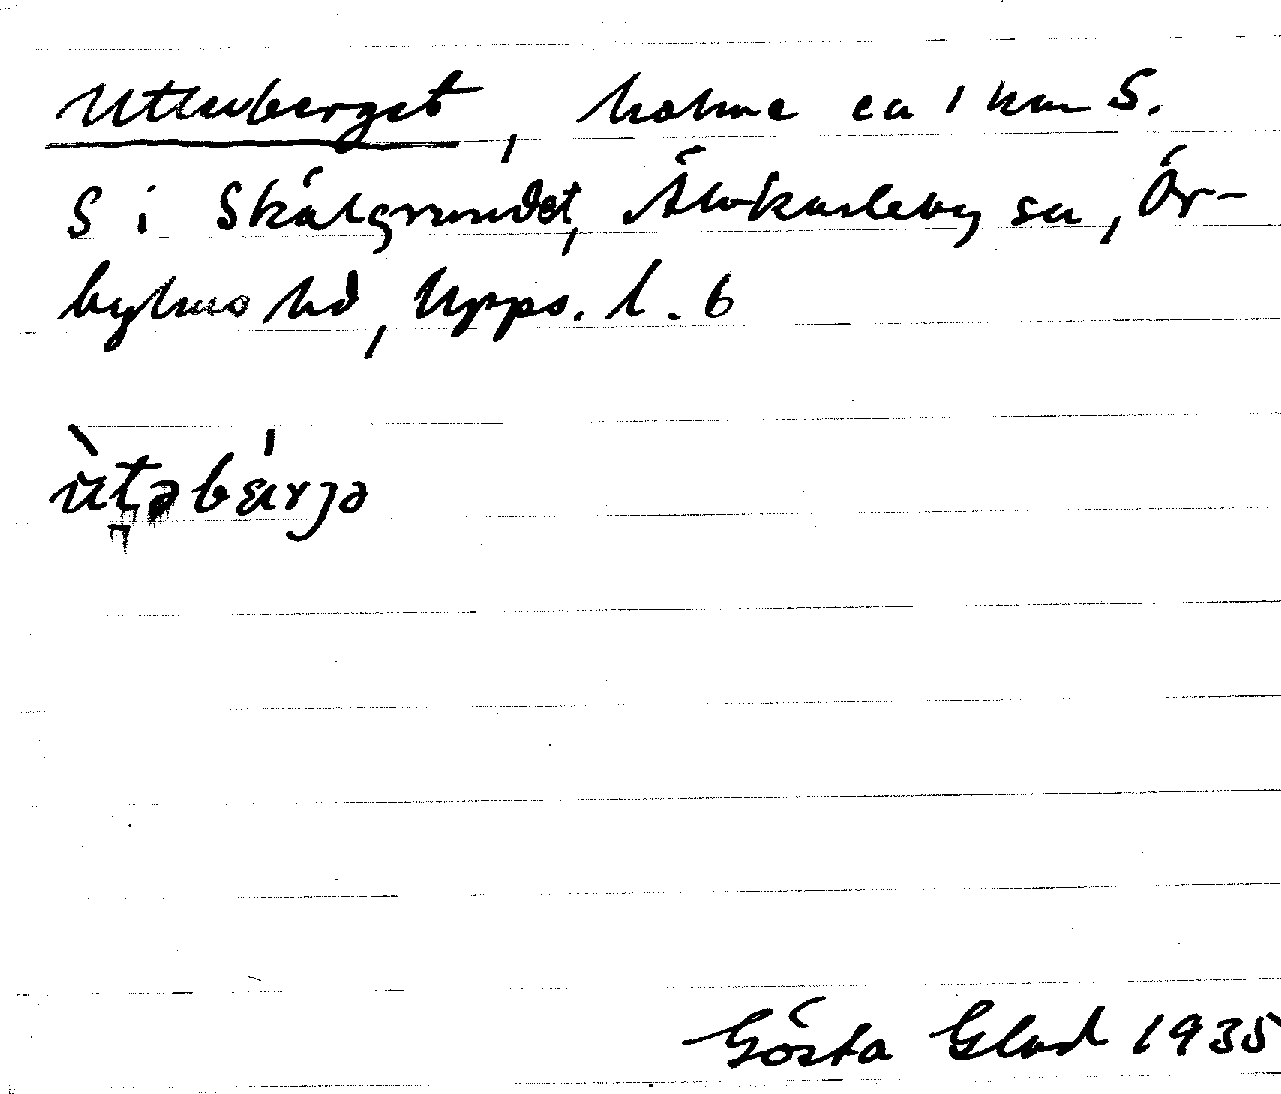 Utterberget, holme ca 1 km S.
S i Skålgrundet, Älvkarleby sn, Ör-
byhus hd, Upps. l. 6
ùtəbǽrjə
Gösta Glad 1935